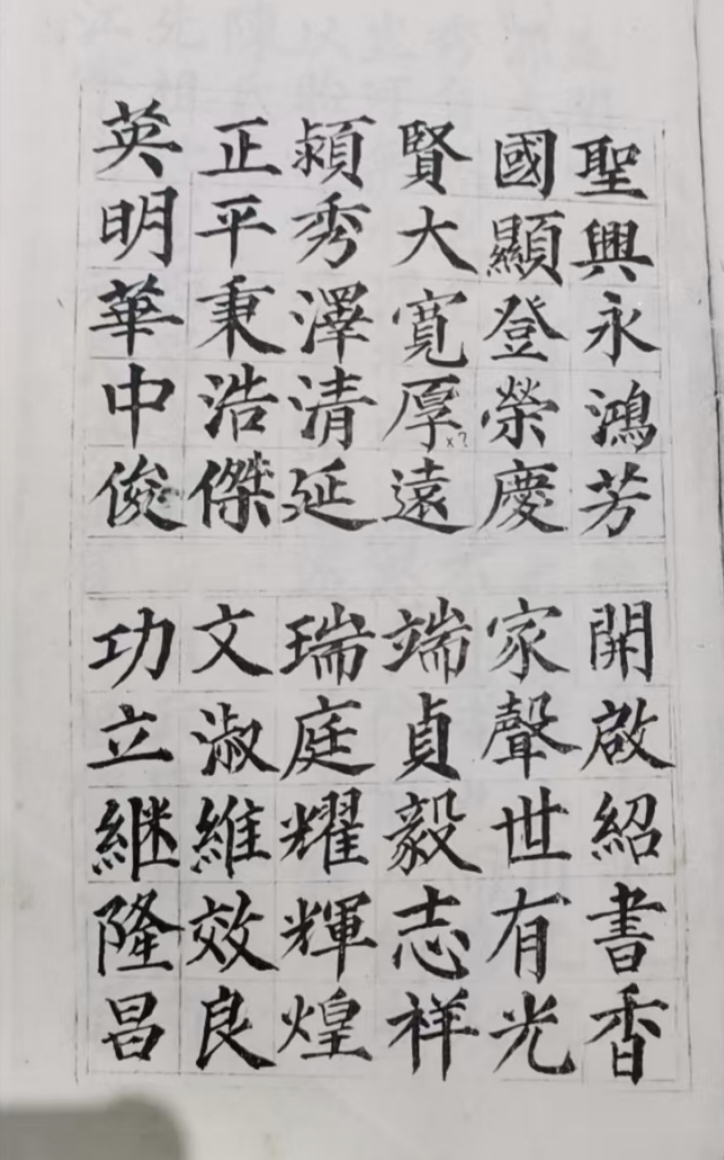 聖興永鴻芳
國顯登榮慶
賢大寬厚遠
頴秀澤清延
正平秉浩傑
英明華中俊
開啟紹書香
家聲世有光
端貞毅志祥
瑞庭耀輝煌
文淑維效良
功立継隆昌